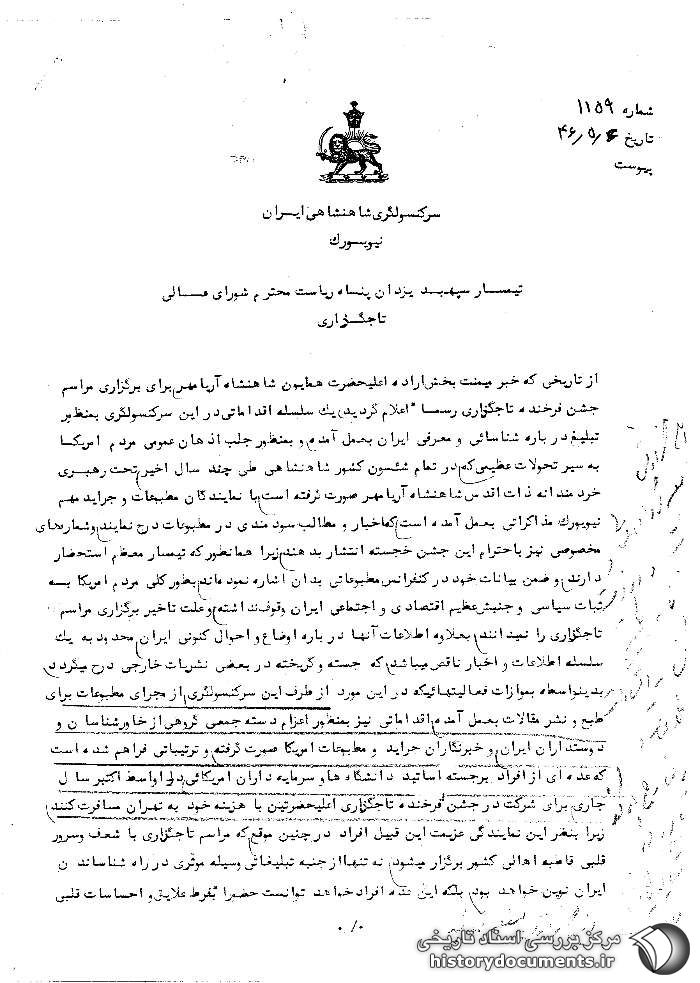 شماره ۱۱۵۹
تاریخ ۴۶/۵/۴
پیوست
سرکنسولگری شاهنشاهی ایران
نیویورک
تیمسار سپهبد یزدان پناه ریاست محترم شورای عالی
تاجگذاری
از تاریخی که خبر میمنت بخش اراده اعلیحضرت همایون شاهنشاه آریامهر برای برگزاری مراسم
جشن فرخنده تاجگزاری رسما" اعلام گردید یك سلسله اقداماتی در این سرکنسولگری بمنظور
تبلیغ در باره شناسائی و معرفی ایران بعمل آمده و بمنظور جلب اذهان عمومی مردم امریکا
به سیر تحولات عظیمی که در تمام شئسون کشور شاهنشاهی طی چند سال اخیر تحت رهبری
خردمندانه ذات اقدس شاهنشاه آریامهر صورت گرفته است با نمایندگان مطبوعات و جراید مهم
نیویورك مذاکراتی بعمل آمده است که اخبار و مطالب سودمندی در مطبوعات درج نمایند و شعارهای
مخصوصی نیز باحترام این جشن خجسته انتشار بدهند زیرا همانطور که تیمسار معظم استحضار
دارند و ضمن بیانات خود در کنفرانس مطبوعاتی بدان اشاره نموده اند بطور کلی مردم امریکا بسه
ثبات سیاسی و جنبش عظیم اقتصادی و اجتماعی ایران وقوف نداشته و علت تاخیر برگزاری مراسم
تاجگزاری را نمیدانند بعلاوه اطلاعات آنها در باره اوضاع و احوال کنونی ایران محدود به یك
سلسله اطلاعات و اخبار ناقص میباشد که جسته و گریخته در بعضی نشریات خارجی درج میگردد
بدینواسطه بموازات فعالیتهائیکه در این مورد از طرف این سرکنسولگری از مجرای مطبوعات برای
طبع و نشر مقالات بعمل آمده اقداماتی نیز بمنظور اعزام دسته جمعی گروهی از خاورشناسان و
دوستداران ایران و خبرنگاران جراید و مطبوعات امریکا صورت گرفته و ترتیباتی فراهم شده است
که عده ای از افراد برجسته اساتید دانشگاه ها و سرمایه داران امریکائی در اواسط اکتبر سال
جاری برای شرکت در جشن فرخنده تاجگزاری اعلیحضرتین با هزینه خود به تهران مسافرت کنند
زیرا بنظر این نمایندگی عزیمت این قبیل افراد در چنین موقع که مراسم تاجگزاری با شعف و سرور
قلبی قاطبه اهالی کشور برگزار میشود نه تنها از جنبه تبلیغاتی وسیله موثری در راه شناساندن
ایران نوین خواهد بود بلکه این عده افراد خواهند توانست حضورا" بفرط علایق و احساسات قلبی
۰/۰
مرکز بررسی اسناد تاریخی
historydocuments.ir